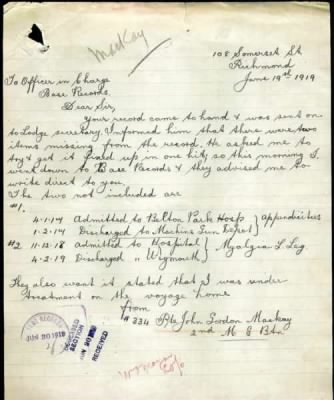 Mackay
108 Somerset St
Richmond
June 19th 1919
To Officer in Charge
Base Records.
Dear Sir,
Your record came to hand & was sent on
to Lodge secretary. Informed him that there were two
items missing from the record. He asked me to
try & get it fixed up in one hit, so this morning I
went down to Base Records & they advised me to
write direct to you.
The two not included are
#1.
4-1-17 Admitted to Belton Park Hosp } appendicitis
1-2-17 Discharged to Machine Gun Depot
#2 11-12-18 admitted to Hospital } Myalgia L Leg
4-2-19 Discharged " Weymouth
They also want it stated that I was under
treatment on the voyage home
from
# 334 Pte John Gordon Mackay
2nd M G Btn
JUN 20 1919
SECTION
JUN 20 1919
RECEIVED